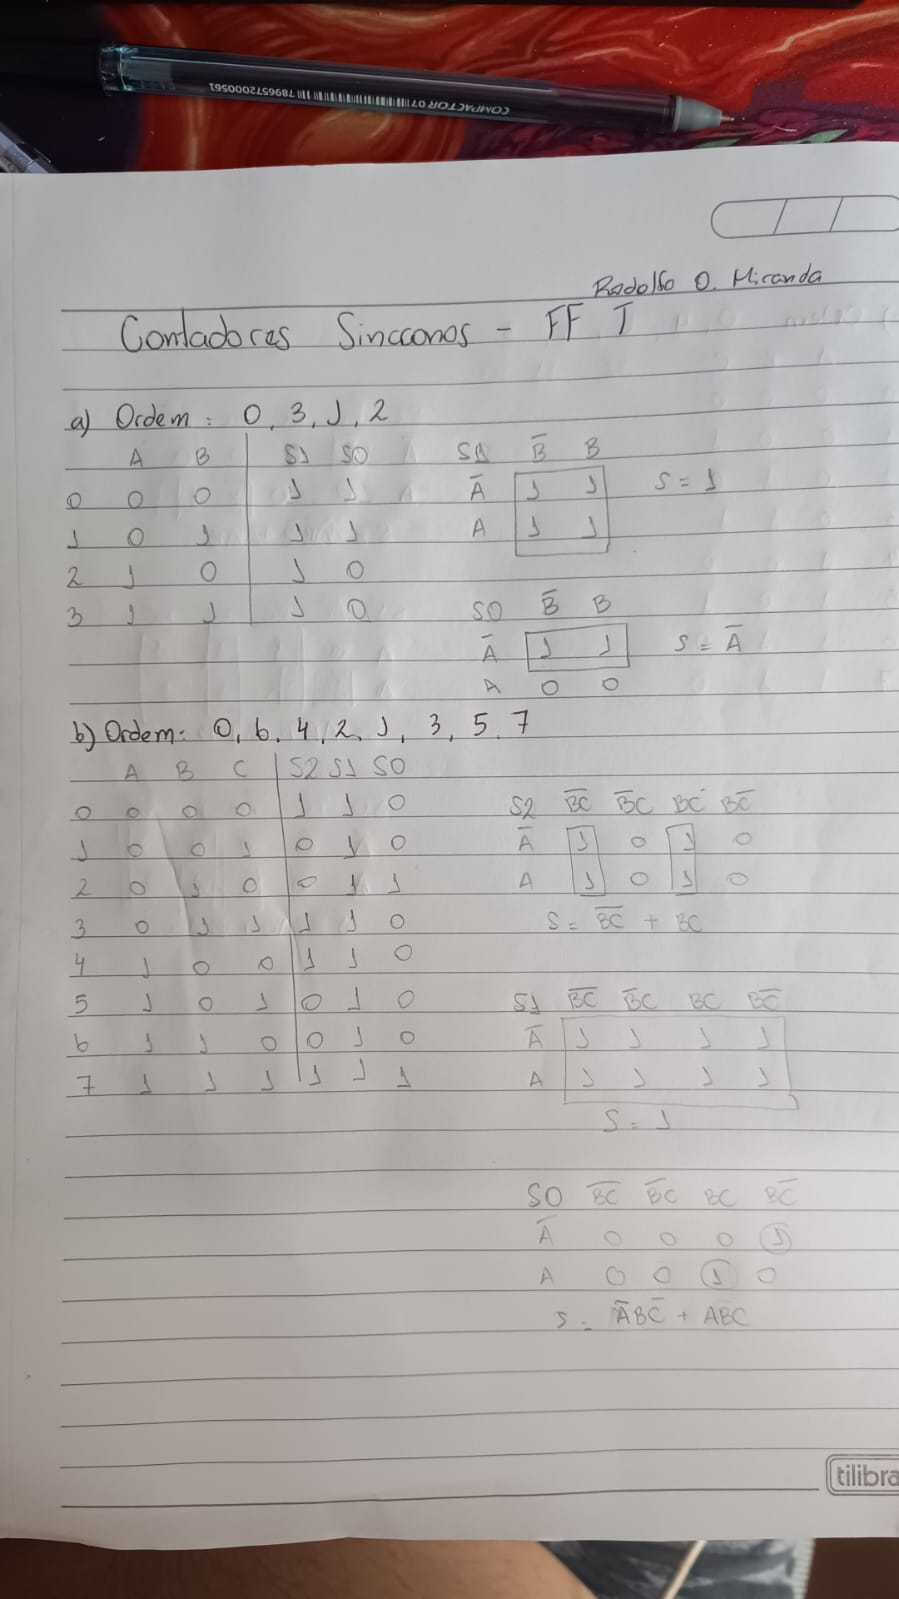 COMPACTOR 07 7896572000561
Rodolfo O. Miranda
Contadores Sincronos - FF T
a) Ordem: 0, 3, 1, 2
A B S1 S0
0 0 0 1 1
1 0 1 1 1
2 1 0 1 0
3 1 1 1 0
S1 B̅ B
A̅ 1 1 S = 1
A 1 1
S0 B̅ B
A̅ 1 1 S = A̅
A 0 0
b) Ordem: 0, 6, 4, 2, 1, 3, 5, 7
A B C S2 S1 S0
0 0 0 0 1 1 0
1 0 0 1 0 1 0
2 0 1 0 0 1 1
3 0 1 1 1 1 0
4 1 0 0 1 1 0
5 1 0 1 0 1 0
6 1 1 0 0 1 0
7 1 1 1 1 1 1
S2 B̅C̅ B̅C BC BC̅
A̅ 1 0 1 0
A 1 0 1 0
S = B̅C̅ + BC
S1 B̅C̅ B̅C BC BC̅
A̅ 1 1 1 1
A 1 1 1 1
S = 1
S0 B̅C̅ B̅C BC BC̅
A̅ 0 0 0 1
A 0 0 1 0
S = A̅BC̅ + ABC
tilibra